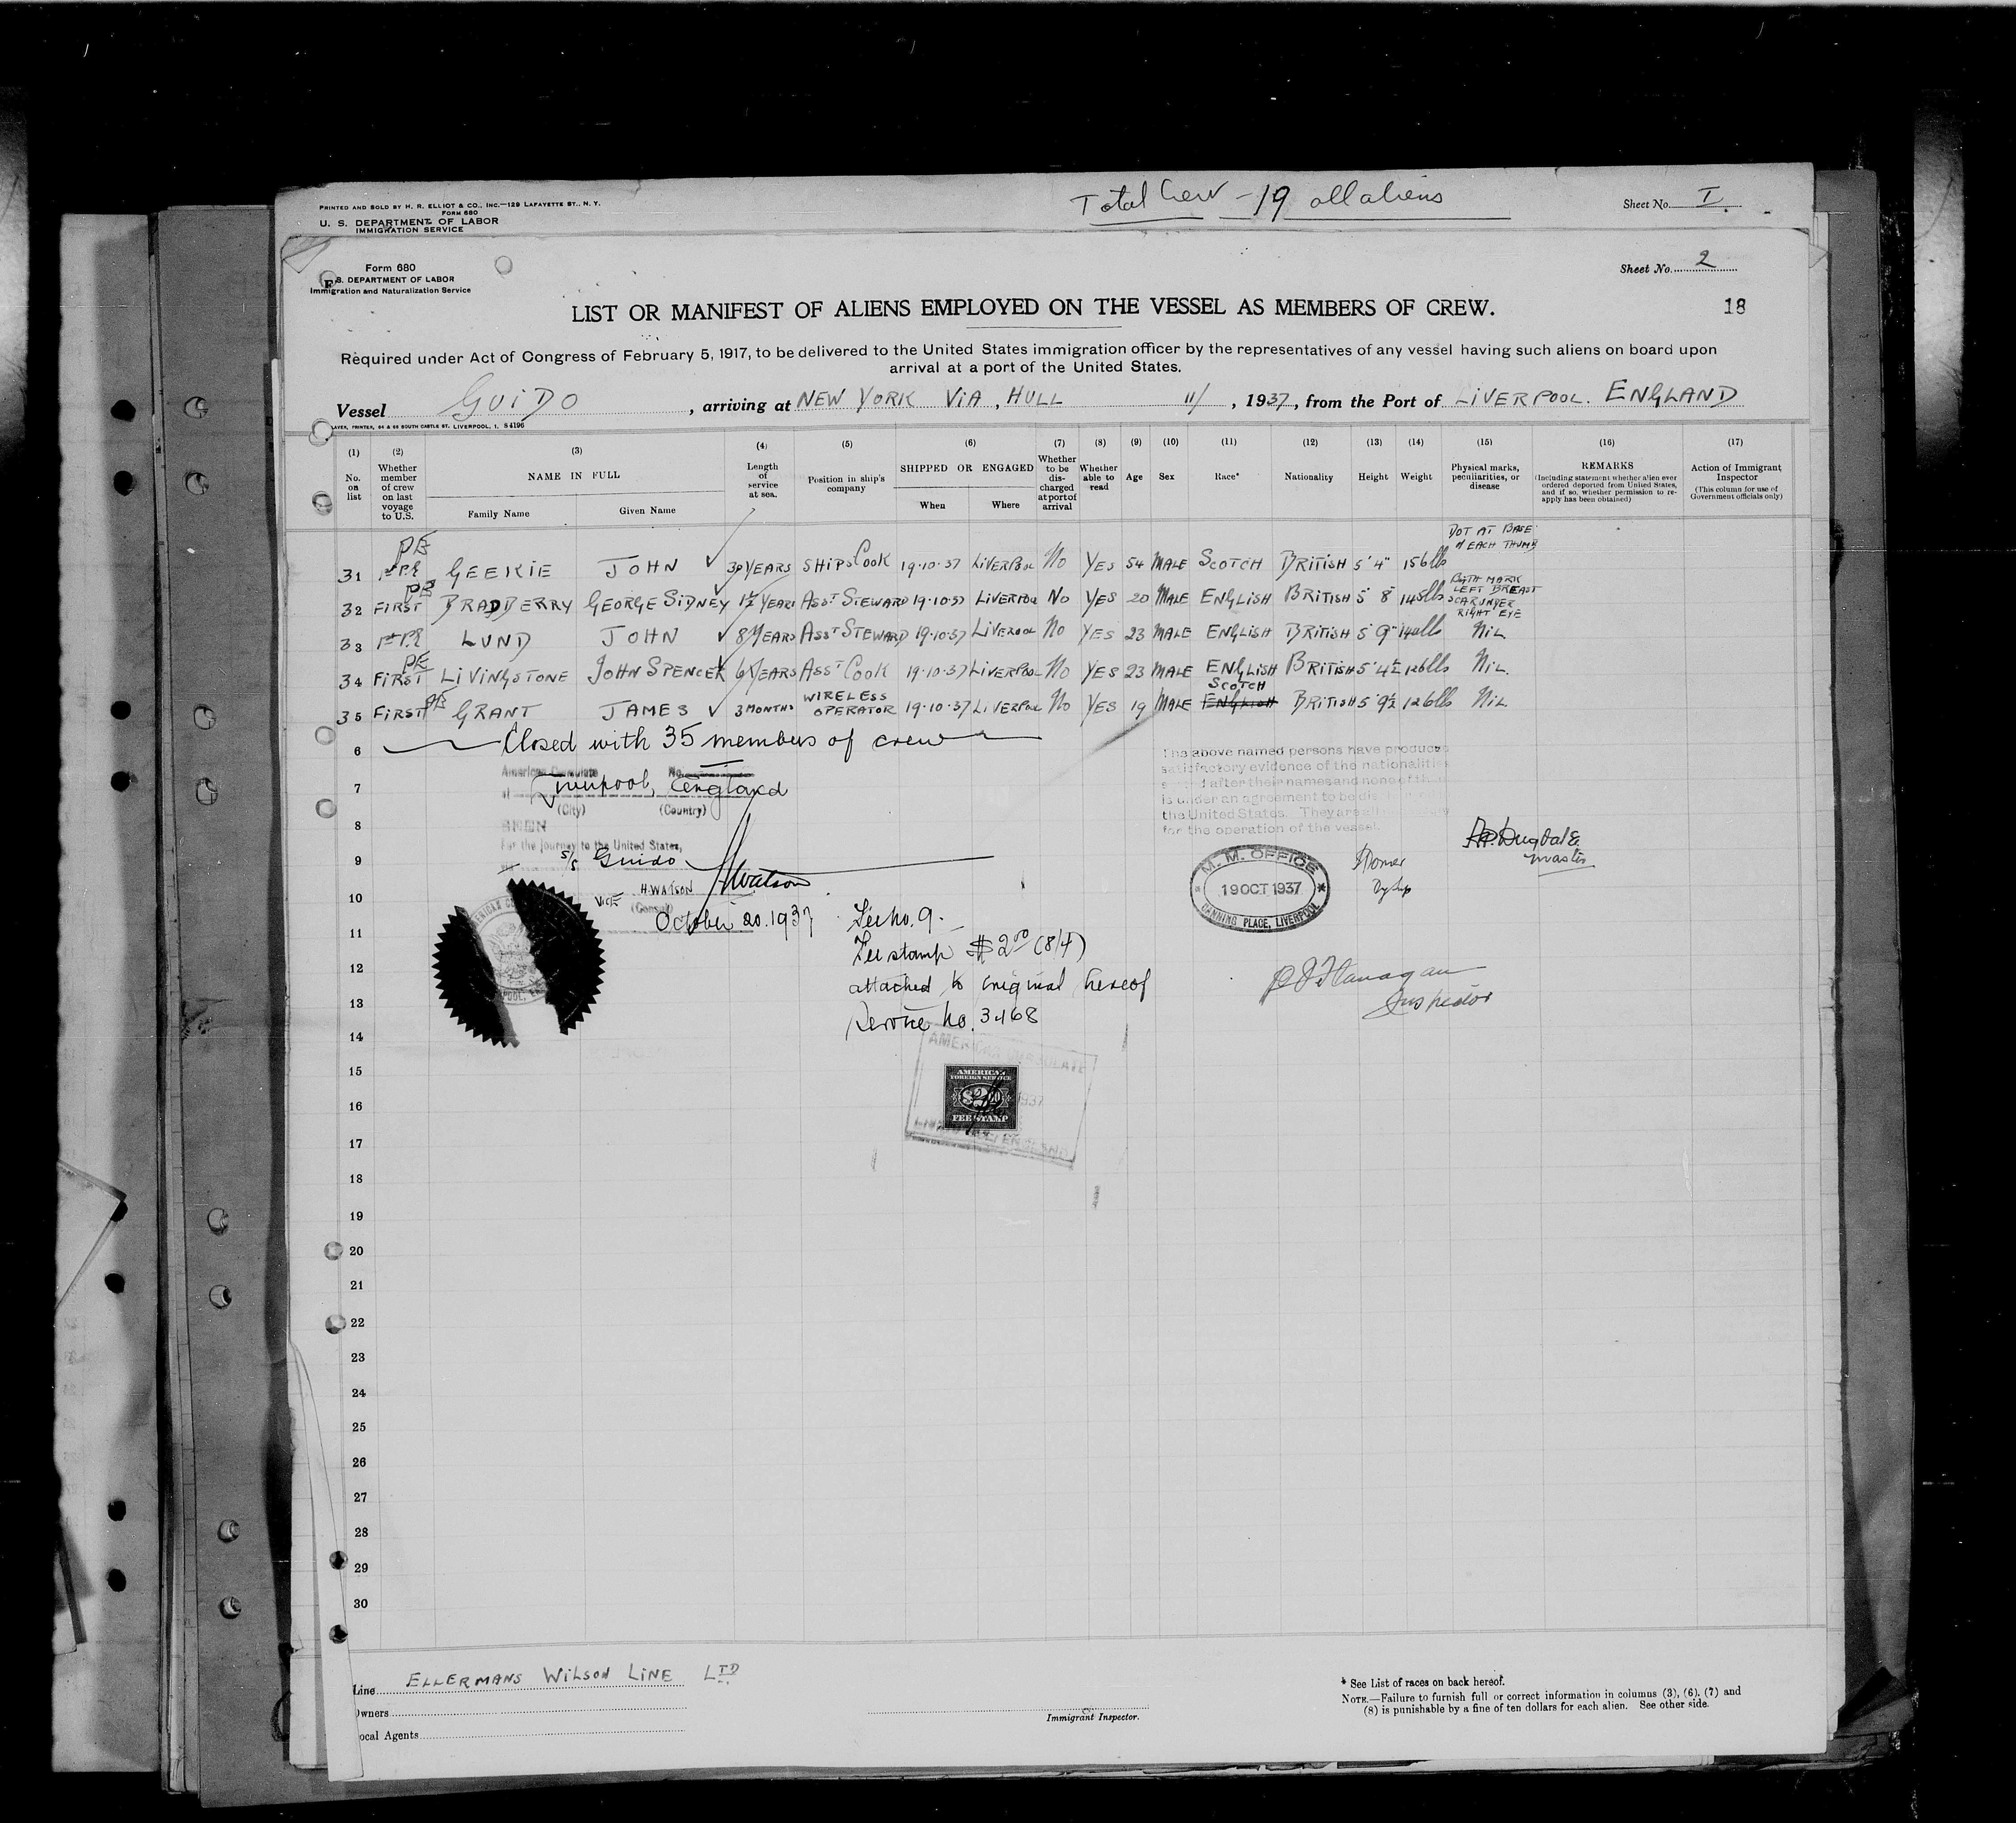 PRINTED AND SOLD BY H. R. ELLIOT & CO., INC.—129 LAFAYETTE ST., N. Y.
FORM 680
U. S. DEPARTMENT OF LABOR
IMMIGRATION SERVICE
Total Crew - 19 all aliens
Sheet No. I
Form 680
S. DEPARTMENT OF LABOR
Immigration and Naturalization Service
Sheet No. 2
LIST OR MANIFEST OF ALIENS EMPLOYED ON THE VESSEL AS MEMBERS OF CREW.
18
Required under Act of Congress of February 5, 1917, to be delivered to the United States immigration officer by the representatives of any vessel having such aliens on board upon
arrival at a port of the United States.
Vessel GUIDO, arriving at NEW YORK VIA, HULL 11/, 1937, from the Port of LIVERPOOL. ENGLAND
PRINTER, 64 & 66 SOUTH CASTLE ST. LIVERPOOL, 1. S4196
(1) (2) (3) (4) (5) (6) (7) (8) (9) (10) (11) (12) (13) (14) (15) (16) (17)
No. on list
Whether member of crew on last voyage to U.S.
NAME IN FULL
Family Name
Given Name
Length of service at sea.
Position in ship's company
SHIPPED OR ENGAGED
When
Where
Whether to be discharged at port of arrival
Whether able to read
Age
Sex
Race*
Nationality
Height
Weight
Physical marks, peculiarities, or disease
REMARKS
(Including statement whether alien ever ordered deported from United States, and if so, whether permission to re-apply has been obtained)
Action of Immigrant Inspector
(This column for use of Government officials only)
31 PE GEEKIE JOHN ✓ 30 YEARS SHIPS COOK 19·10·37 LIVERPOOL No YES 54 MALE SCOTCH BRITISH 5' 4" 156 lbs DOT AT BASE of EACH THUMB
32 PE FIRST BRADBERRY GEORGE SIDNEY 1½ YEARS ASST STEWARD 19·10·37 LIVERPOOL No YES 20 MALE ENGLISH BRITISH 5' 8" 145 lbs BIRTH MARK LEFT BREAST SCAR UNDER RIGHT EYE
33 LUND JOHN ✓ 8 YEARS ASST STEWARD 19·10·37 LIVERPOOL No YES 23 MALE ENGLISH BRITISH 5' 9" 140 lbs NIL
34 PE FIRST LIVINGSTONE JOHN SPENCER 6 YEARS ASST COOK 19·10·37 LIVERPOOL No YES 23 MALE ENGLISH BRITISH 5' 4½ 126 lbs NIL.
35 FIRST PE GRANT JAMES ✓ 3 MONTHS WIRELESS OPERATOR 19·10·37 LIVERPOOL No YES 19 MALE SCOTCH ENGLISH BRITISH 5' 9½ 126 lbs NIL
6 Closed with 35 members of crew
The above named persons have produced
satisfactory evidence of the nationalities
stated after their names and none of them
is under an agreement to be discharged
the United States. They are all
for the operation of the vessel.
American Consulate No.
7 at Liverpool, England
(City) (Country)
8
For the journey to the United States,
9 S/S Guido
H. WATSON HWatson
10 VICE (Consul)
October 20. 1937
M. M. OFFICE
19 OCT 1937
CANNING PLACE, LIVERPOOL
Dugdale
master
11 Fee no. 9.
Fee stamp $2.00 (8/4)
12 attached to original hereof
13 Service No. 3468
Flanagan
Inspector
14
AMERICAN CONSULATE
1937
LIVERPOOL, ENGLAND
AMERICAN
FOREIGN SERVICE
$2.00
FEE STAMP
15
16
17
18
19
20
21
22
23
24
25
26
27
28
29
30
Line ELLERMANS WILSON LINE LTD
Owners
Local Agents
Immigrant Inspector.
* See List of races on back hereof.
NOTE.—Failure to furnish full or correct information in columns (3), (6), (7) and
(8) is punishable by a fine of ten dollars for each alien. See other side.